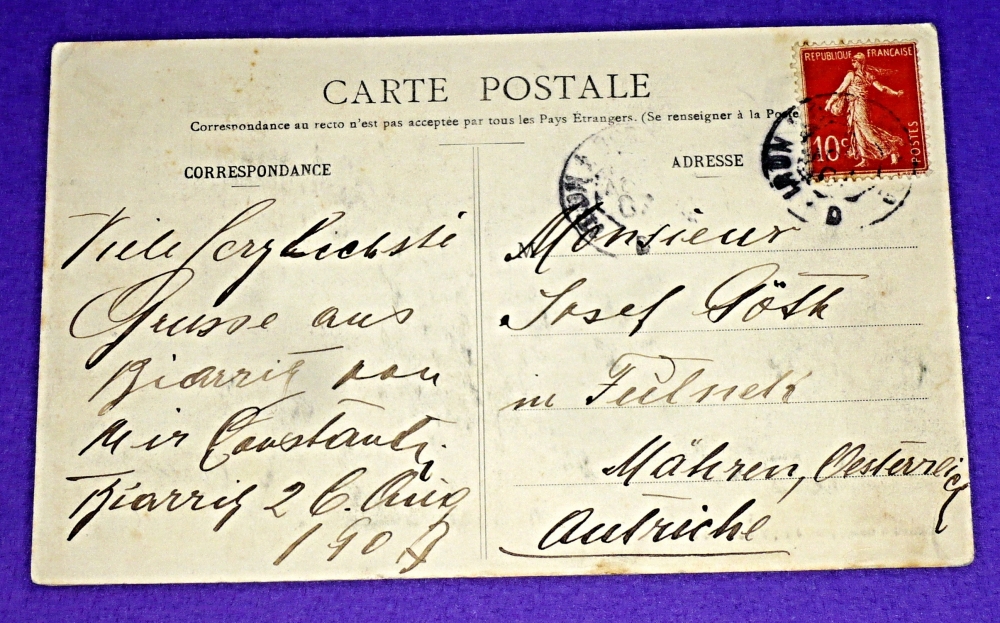 CARTE POSTALE
Correspondance au recto n'est pas acceptée par tous les Pays Étrangers. (Se renseigner à la Poste
CORRESPONDANCE
ADRESSE
REPUBLIQUE FRANÇAISE
10c
POSTES
D
Viele herzlichste
Grusse aus
Biarritz von
Mir
Biarritz 26. Aug
1907
Monsieur
Josef Göth
in Fulnek
Mähren, Oesterreich
Autriche